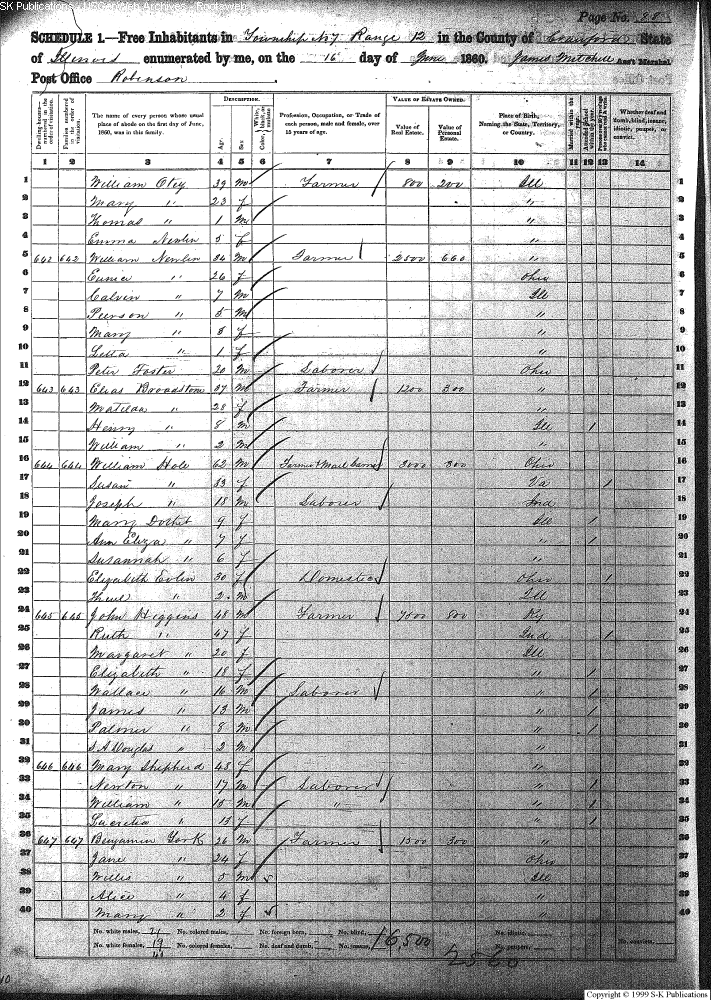 SK Publications - USGenWeb Archives - Rootsweb
Page No. 88
SCHEDULE 1.—Free Inhabitants in Township No 7 Range 12 in the County of Crawford State
of Illinois enumerated by me, on the 16 day of June 1860. James Mitchell Ass't Marshal.
Post Office Robinson
DESCRIPTION. VALUE OF ESTATE OWNED.
Dwelling-houses—numbered in the order of visitation. Families numbered in the order of visitation. The name of every person whose usual place of abode on the first day of June, 1860, was in this family. Age. Sex. Color, White, black, or mulatto. Profession, Occupation, or Trade of each person, male and female, over 15 years of age. Value of Real Estate. Value of Personal Estate. Place of Birth, Naming the State, Territory, or Country. Married within the year. Attended School within the year. Whether deaf and dumb, blind, insane, idiotic, pauper, or convict.
1 2 3 4 5 6 7 8 9 10 11 12 13 14
1 William Otey 39 m Farmer 800 200 Ill 1
2 Mary " 23 f " 2
3 Thomas " 1 m " 3
4 Emma Newlin 5 f " 4
5 642 642 William Newlin 34 m Farmer 2500 660 " 5
6 Eunice " 26 f Ohio 6
7 Calvin " 7 m Ill 7
8 Peerson " 5 m " 8
9 Mary " 3 f " 9
10 " 1 f " 10
11 Peter Foster 20 m Laborer Ohio 11
12 643 643 Elias Broadstom 37 m Farmer 1200 300 " 12
13 Matilda " 28 f " 13
14 Henry " 8 m Ill 1 14
15 William " 2 m " 15
16 644 644 William Hole 62 m Farmer & Mail 3000 300 Ohio 16
17 Susan " 33 f Va 1 17
18 Joseph " 18 m Laborer Ind 18
19 Mary 9 f Ill 1 19
20 Ann Eliza " 7 f " 1 20
21 Susannah " 6 f " 21
22 Elizabeth 30 f Domestic Ohio 1 22
23 " 2 m Ill 23
24 645 645 John Higgins 48 m Farmer 800 Ky 24
25 Ruth " 47 f Ind 1 25
26 Margaret " 20 f Ill 26
27 Elizabeth " 18 f " 1 27
28 Wallace " 16 m Laborer " 1 28
29 James " 13 m " 1 29
30 Palmer " 8 m " 1 30
31 S. A Douglas " 2 m " 31
32 646 646 Mary Shepherd 48 f " 32
33 Newton " 17 m Laborer " 1 33
34 William " 15 m " " 1 34
35 Lucretia " 13 f " 1 35
36 647 647 Benjamin York 26 m Farmer 1500 300 " 36
37 Jane " 24 f Ohio 37
38 Willis " 5 m Ill 38
39 Alice " 4 f " 39
40 Mary " 2 f " 40
No. white males, 21 No. colored males, No. foreign born, No. blind, No. idiotic,
No. white females, 19 No. colored females, No. deaf and dumb, No. insane, 16,500 2560 No. paupers, No. convicts,
Copyright © 1999 S-K Publications